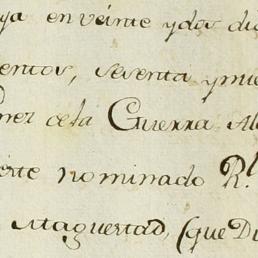 ya en veinte ydos di
entos, sesenta ynue
ner de la Guerra, Al
erte nominado Rl.
Magestad, (que Di